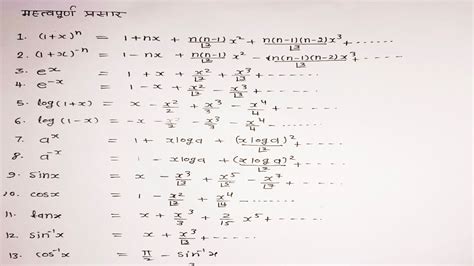 महत्वपूर्ण प्रसार
1. (1+x)^n = 1+nx + n(n-1)/⌊2 x² + n(n-1)(n-2)/⌊3 x³ + ------
2. (1+x)^-n = 1-nx + n(n-1)/⌊2 x² - n(n-1)(n-2)x³/⌊3 + -----
3. e^x = 1 + x + x²/⌊2 + x³/⌊3 + ------
4. e^-x = 1 - x + x²/⌊2 - x³/⌊3 + ------
5. log(1+x) = x - x²/2 + x³/3 - x⁴/4 + ------
6. log(1-x) = -x - x²/2 - x³/3 - x⁴/4 ------
7. a^x = 1 + x log a + (x log a)²/⌊2 + ------
8. a^-x = 1 - x log a + (x log a)²/⌊2 + ------
9. sinx = x - x³/⌊3 + x⁵/⌊5 - x⁷/⌊7 ------
10. cosx = 1 - x²/⌊2 + x⁴/⌊4 ------
11. tanx = x + x³/3 + 2/15 x⁵ + ------
12. sin⁻¹x = x + x³/⌊3 + ------
13. cos⁻¹x = π/2 - sin⁻¹x